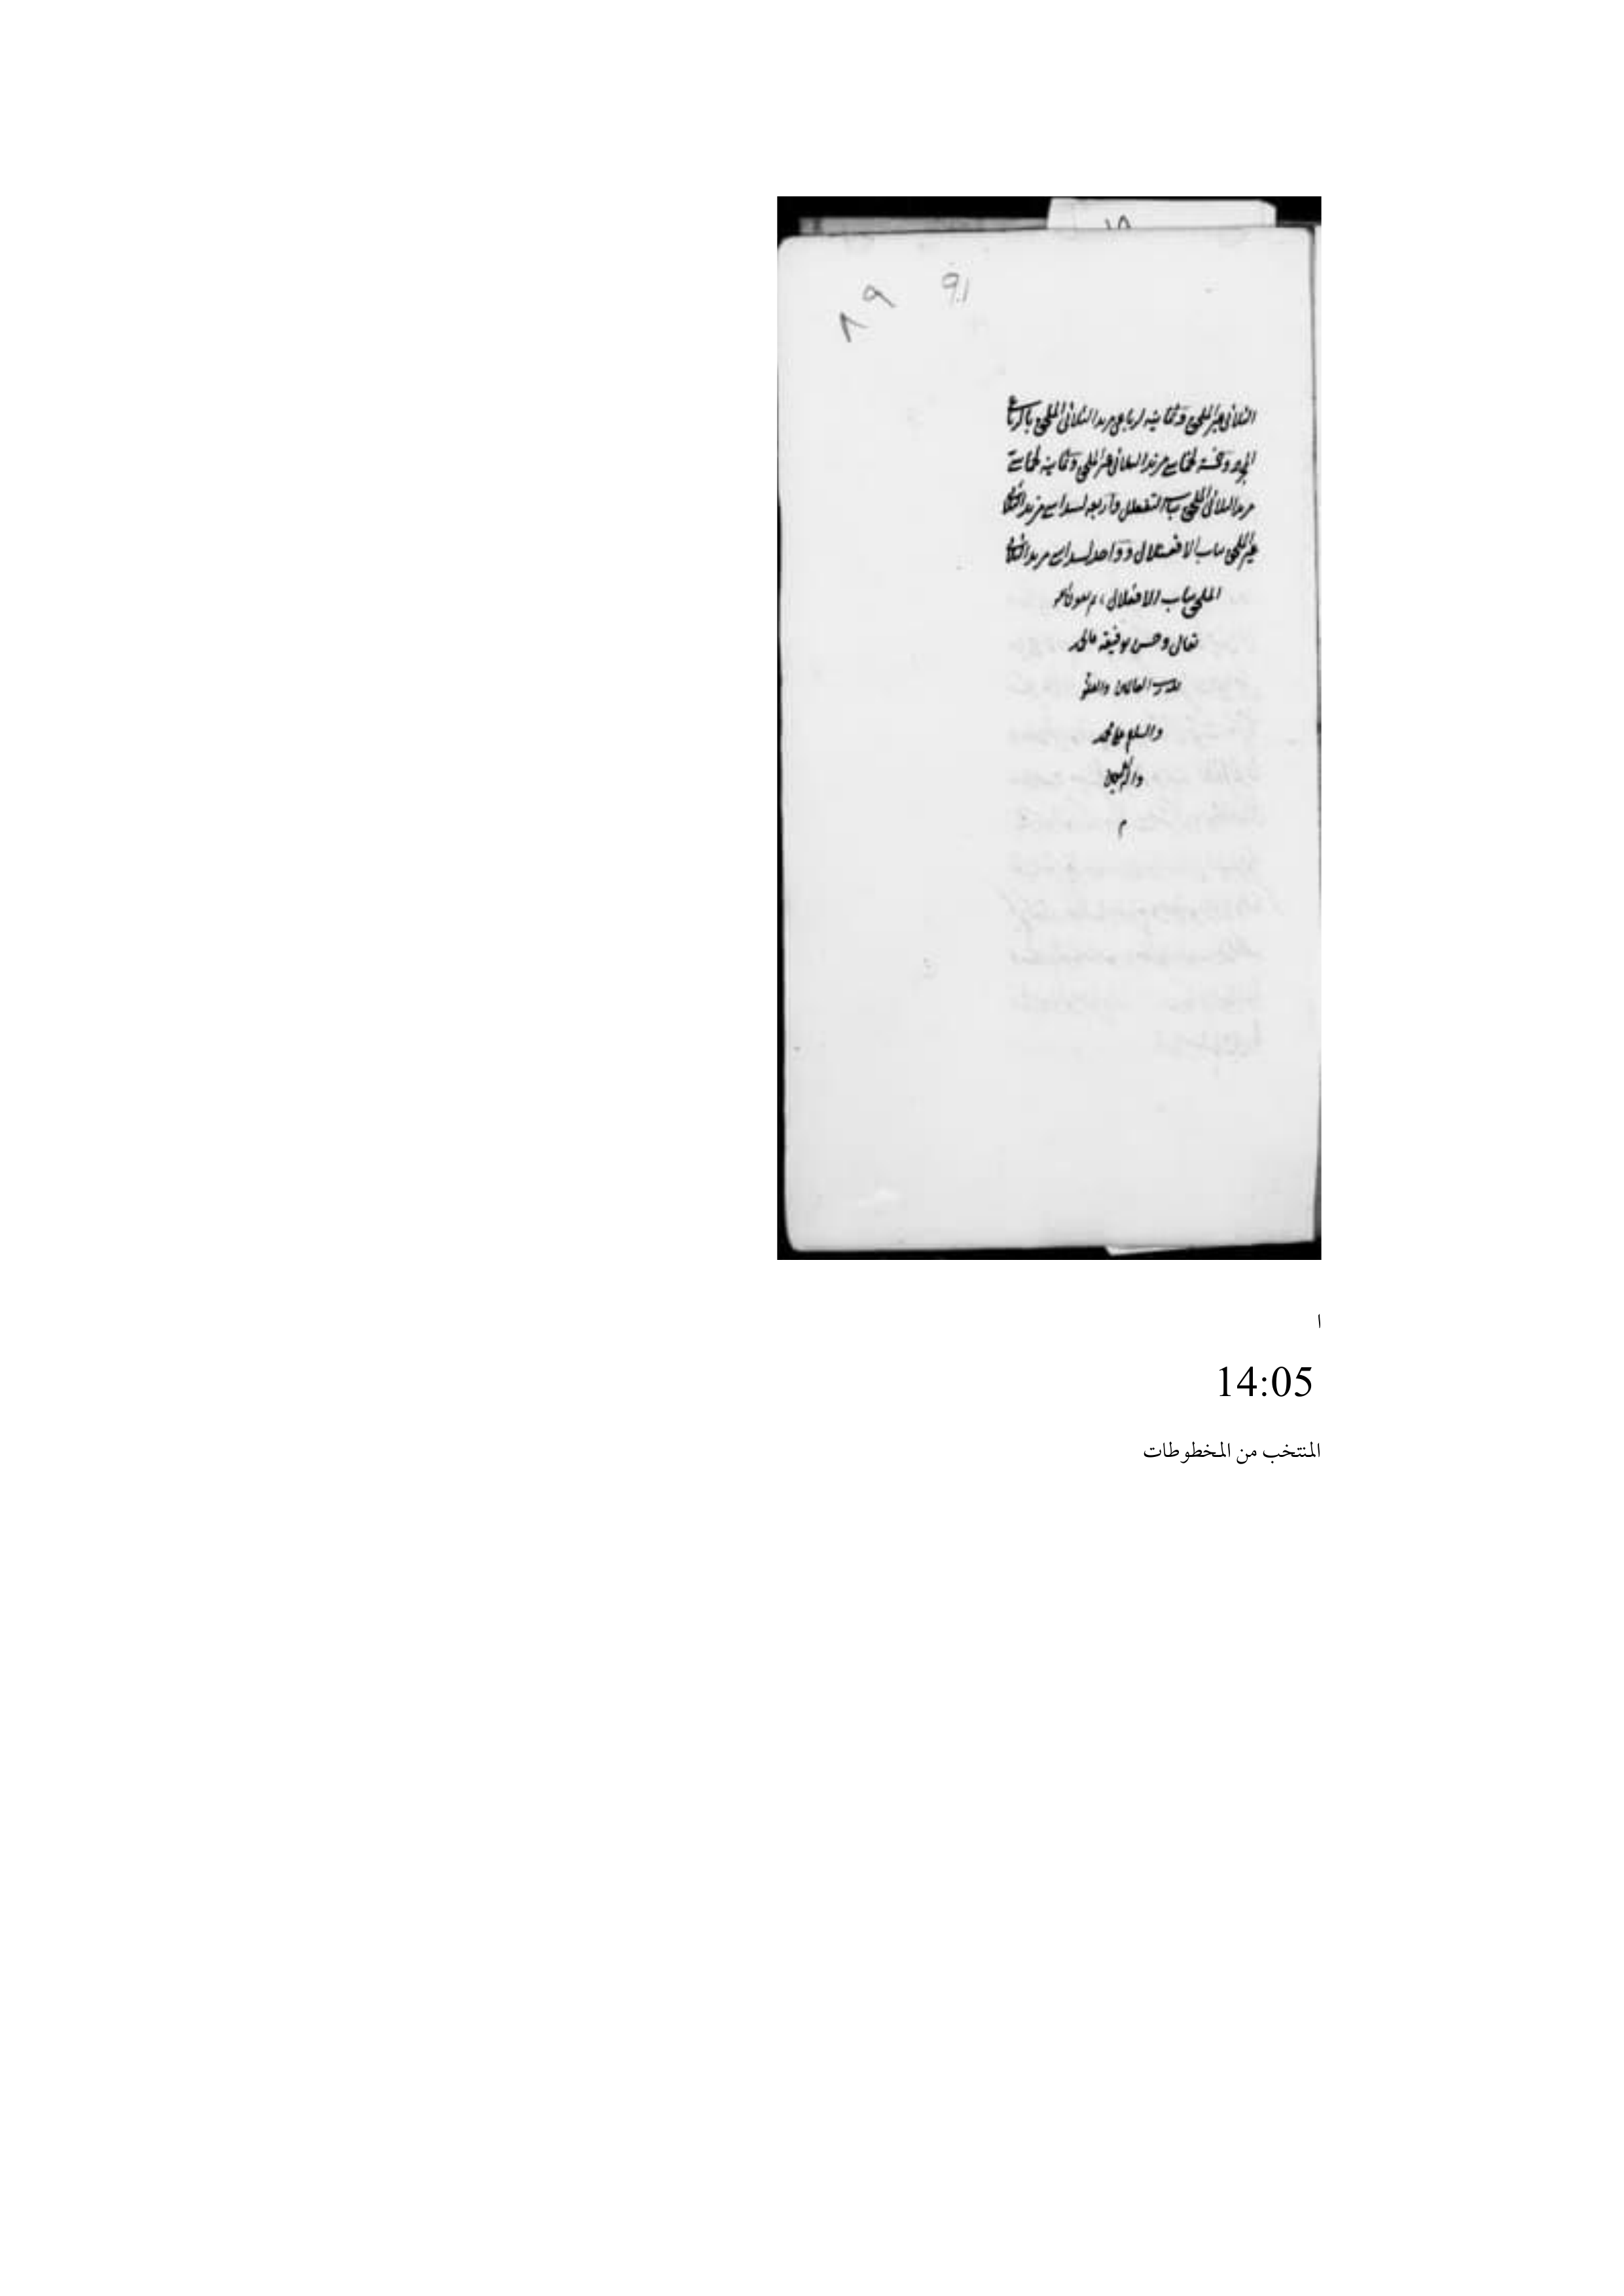 ٨٩ ٩١
الثلاثي غير الملحق وثمانية لرباعي مزيد الثلاثي الملحق بالرباعي
المجرد وخمسة لخماسي مزيد الثلاثي غير الملحق وثمانية لخماسي
مزيد الثلاثي الملحق بباب التفعلل واربعة لسداسي مزيد الثلاثي
غير الملحق بباب الافعنلال وواحد لسداسي مزيد الثلاثي
الملحق بباب الافعنلال تم بعون الله
تعالى وحسن توفيقه والحمد
لله رب العالمين والصلوة
والسلم على محمد
واله اجمعين
م
ا
14:05
المنتخب من المخطوطات